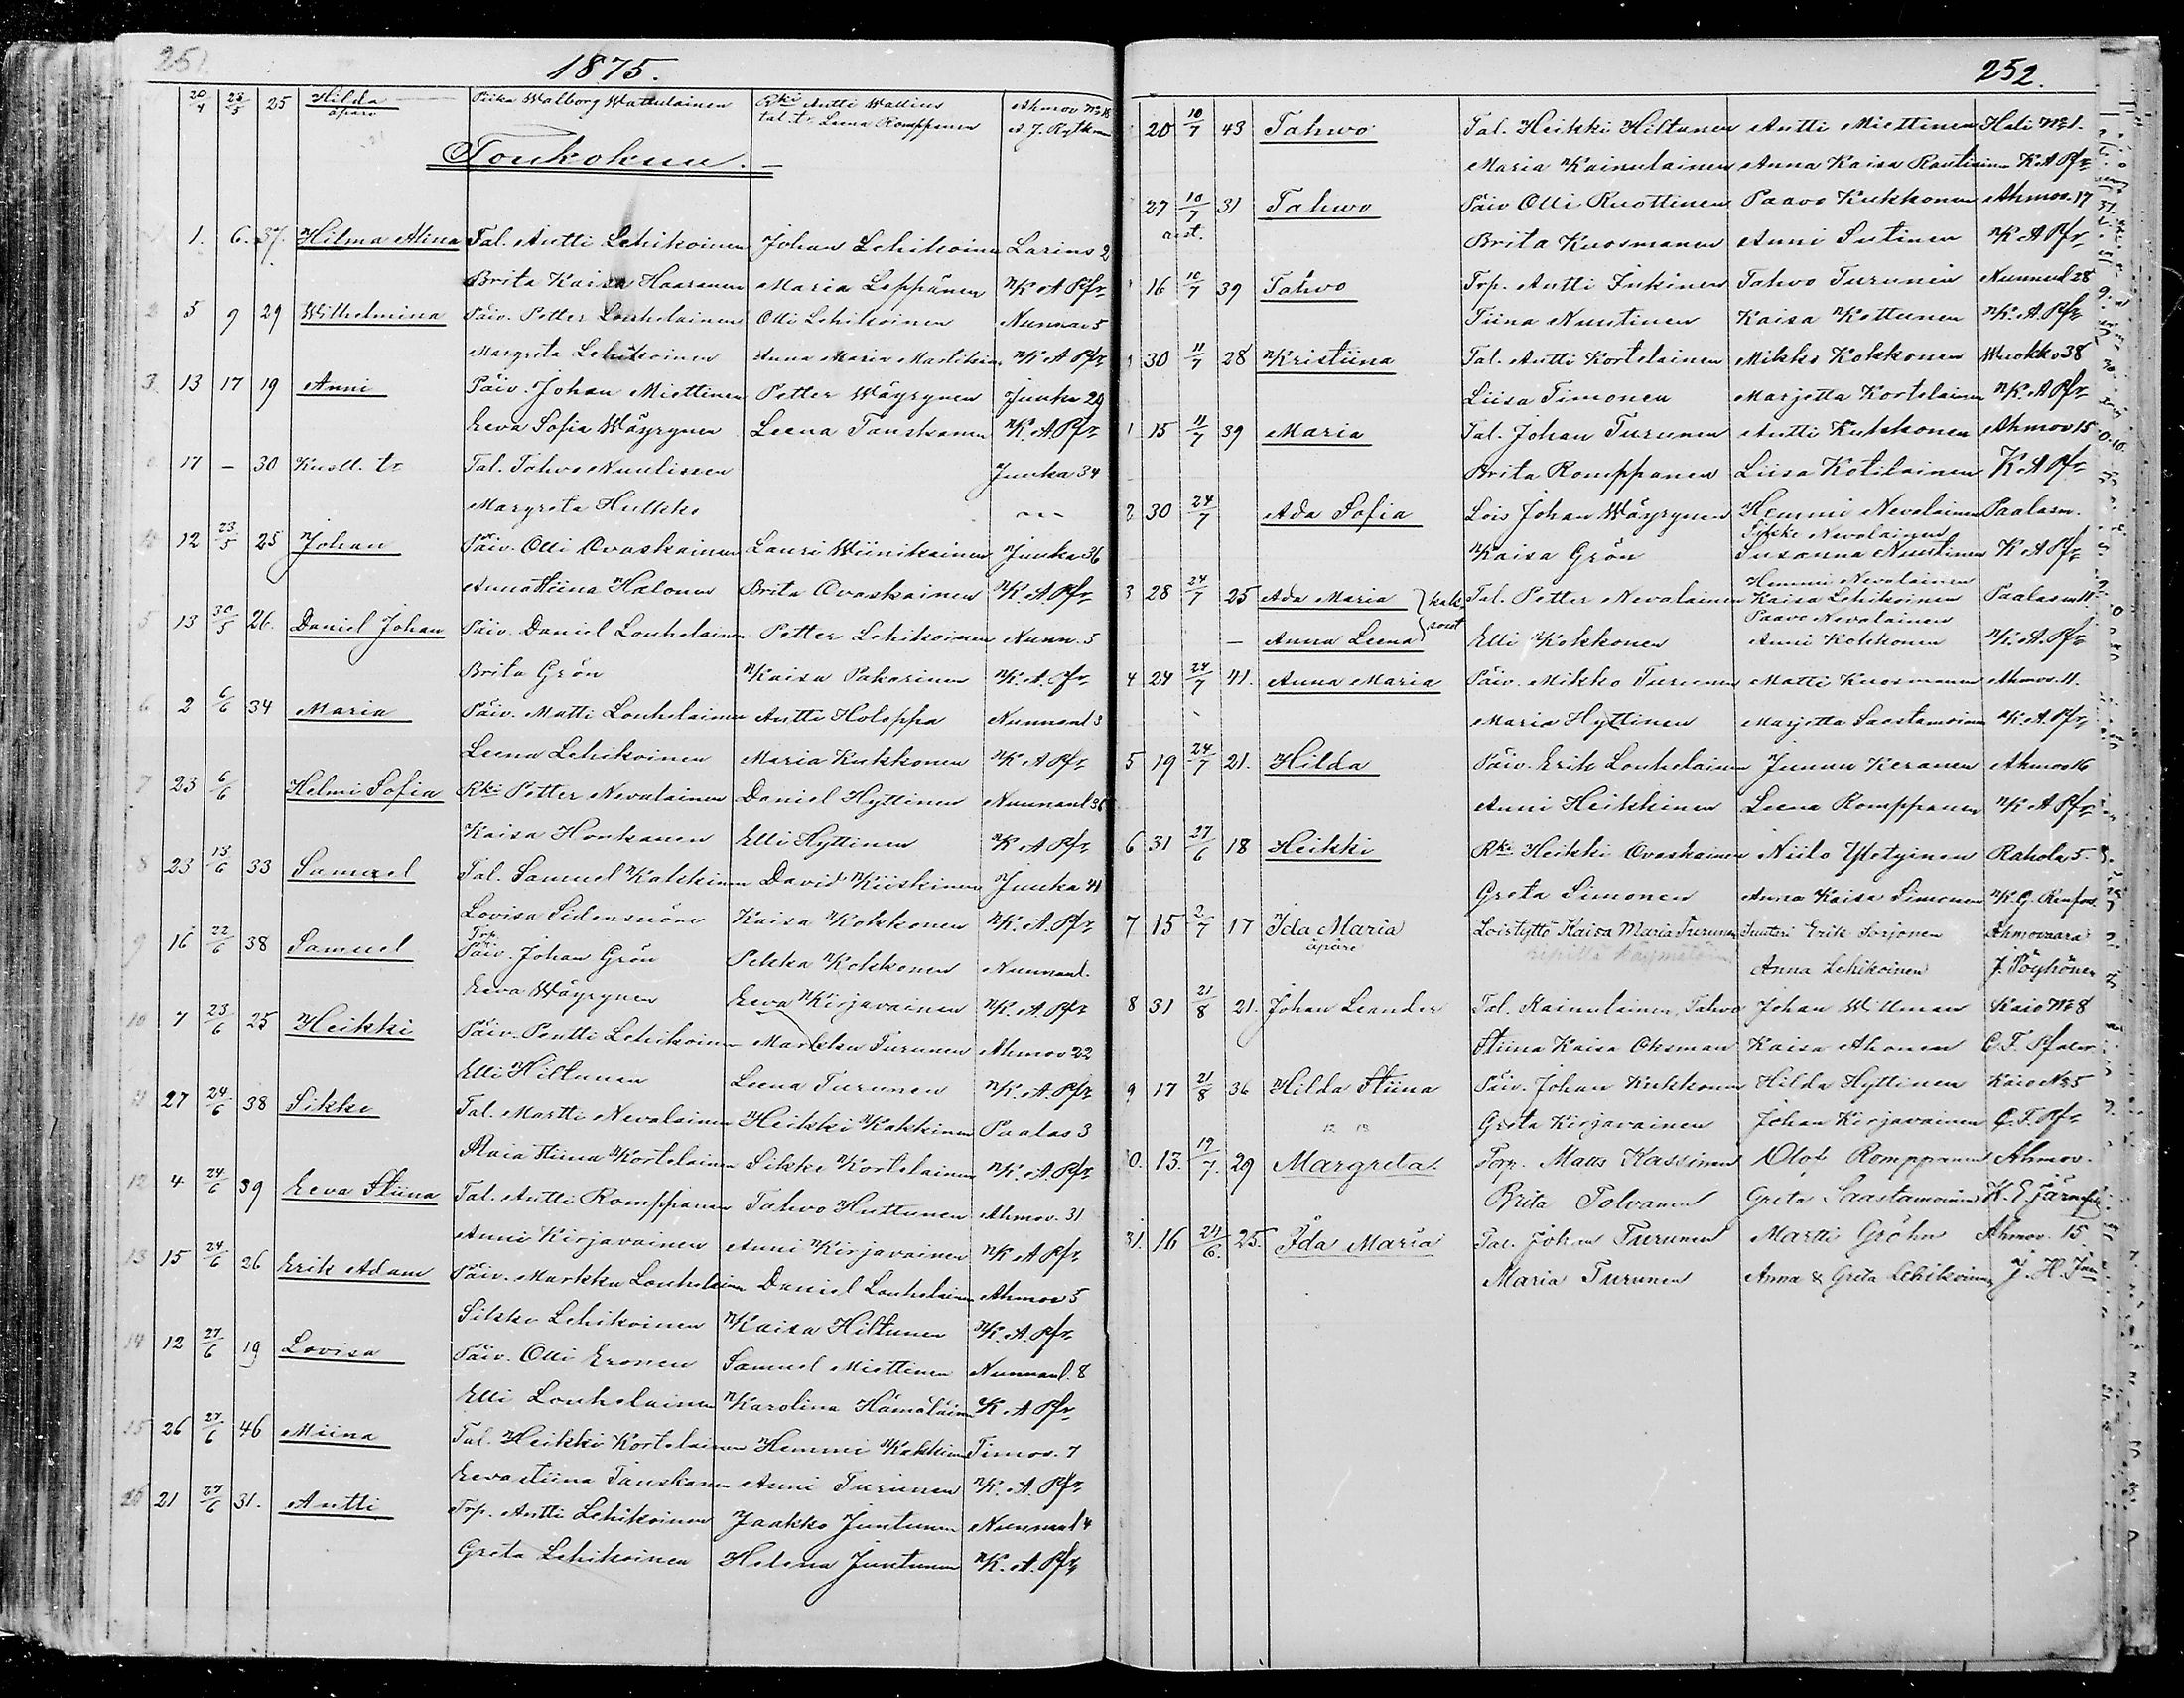 251
1875.
20/4 23/5 25 Hilda Piika Walborg Wattulainen Rki Antti Wallius Ahmov No 18
äpärä tal. tr Leena Romppanen A. J. Rytkönen
Toukokuu.
1. 6. 37. Hilma Miina Tal. Antti Lehikoinen Johan Lehikoinen Larins 2
Brita Kaisa Haaranen Maria Leppänen K A Pfr
2 5 9 29 Wilhelmina Päiv. Petter Louhelainen Olli Lehikoinen Nunnan 5
Margreta Lehikoinen Anna Maria Martikain. K A Pfr
3. 13 17 19 Anni Päiv. Johan Miettinen Petter Wäyrynen Junka 29
Eeva Sofia Wäyrynen Leena Tanskanen K. A. Pfr
17 – 30 Kuoll. tr Tal. Tahvo Nuutinen Junka 34
Margreta Hulkko
12 23/5 25 Johan Päiv. Olli Ovaskainen Lauri Wiinikainen Junka 36
Anna Stiina Halonen Brita Ovaskainen K. A. Pfr
5 13 30/5 26. Daniel Johan Päiv. Daniel Louhelainen Petter Lehikoinen Nunn. 5
Brita Grön Kaisa Pakarinen K. A. Pfr
6 2 6/6 34 Maria Päiv. Matti Louhelainen Antti Holoppa Nunnanl 3
Leena Lehikoinen Maria Kukkonen K A Pfr
7 23 6/6 Helmi Sofia Rki Petter Nevalainen Daniel Hyttinen Nunnanl 36
Kaisa Honkanen Elli Hyttinen K A Pfr
8 23 13/6 33 Samuel Tal. Samuel Kakkinen David Kiiskinen Junka 41
Lovisa Sidensnöre Kaisa Kokkonen K. A. Pfr
9 16 22/6 38 Samuel Trp. Päiv. Johan Grön Pekka Kokkonen Nunnanl.
Eeva Wäyrynen Eeva Kirjavainen K. A. Pfr
10 7 23/6 25 Heikki Päiv. Pentti Lehikoinen Markku Turunen Ahmov 22
Elli Hiltunen Leena Turunen K. A. Pfr
11 27 24/6 38 Sikke Tal. Martti Nevalainen Heikki Kakkinen Paalas 3
Maia Stiina Kortelainen Sikke Kortelainen K. A. Pfr
12 4 24/6 39 Eeva Stiina Tal. Antti Romppanen Tahvo Huttunen Ahmov. 31
Anni Kirjavainen Anni Kirjavainen K A Pfr
13 15 24/6 26 Erik Adam Päiv. Markku Louhelainen Daniel Louhelainen Ahmov 5
Sikke Lehikoinen Kaisa Hiltunen K. A. Pfr
14 12 27/6 19 Lovisa Päiv. Olli Eronen Samuel Miettinen Nunnanl. 8
Elli Louhelainen Karolina Hämäläinen K A Pfr
15 26 27/6 46 Miina Tal. Heikki Kortelainen Hemmi Kakkinen Timov. 7
Eeva Stiina Tanskanen Anni Turunen K. A. Pfr
16 21 27/6 31. Antti Trp. Antti Lehikoinen Jaakko Juntunen Nunnanl 4
Greta Lehikoinen Helena Juntunen K. A. Pfr
252.
20 10/7 43 Tahwo Tal. Heikki Hiltunen Antti Miettinen Hali No 1.
Maria Kainulainen Anna Kaisa Rautiainen K A Pfr
27 10/7 31 Tahwo Päiv Olli Ruottinen Paavo Kukkonen Ahmov. 17
Brita Kuosmanen Anni Sutinen K A Pfr
16 10/7 39 Tahvo Trp. Antti Inkinen Tahvo Turunen Nunnanl 28
Tiina Nuutinen Kaisa Kettunen K. A. Pfr
30 11/7 28 Kristiina Tal. Antti Kortelainen Mikko Kokkonen Wuokko 38
Liisa Timonen Marjetta Kortelainen K. A Pfr
1 15 11/7 39 Maria Tal. Johan Turunen Antti Kukkonen Ahmov 15
Brita Romppanen Liisa Kotilainen K. A Pfr
2 30 24/7 Ada Sofia Lois Johan Wäyrynen Hemmi Nevalainen Paalasm.
Sikke Nevalainen
Kaisa Grön Susanna Nuutinen K A Pfr
Hemmi Nevalainen
3 28 24/7 25 Ada Maria Tal. Petter Nevalainen Kaisa Lehikoinen Paalasm 11.
Paavo Nevalainen
– Anna Leena Elli Kokkonen Anni Kokkonen K. A. Pfr
4 24 24/7 41. Anna Maria Päiv. Mikko Turunen Matti Kuosmanen Ahmov. 11.
Maria Hyttinen Marjetta Saastamoinen K. A. Pfr
5 19 24/7 21. Hilda Päiv. Erik Louhelainen Junnu Keranen Ahmov 16
Anni Heikkinen Leena Romppanen K A Pfr
6 31 27/6 18 Heikki Rki Heikki Ovaskainen Niilo Yletyinen Rahola 5.
Greta Simonen Anna Kaisa Simonen K. G. Renfors
7 15 2/7 17 Ida Maria Loistyttö Kaisa Maria Turunen Suutari Erik Sorjonen Ahmovaara
äpäre Anna Lehikoinen J. Pöyhönen
8 31 21/8 21. Johan Leander Tal. Kainulainen, Tahvo Johan Willman Kaio No 8
Stiina Kaisa Oksman Kaisa Ahonen C. F. Pfaler
9 17 21/8 36 Hilda Stiina Päiv. Johan Kukkonen Hilda Hyttinen Kaio No 5
Greta Kirjavainen Johan Kirjavainen C. F. Pfr
30. 13. 19/7. 29 Margreta. Torp. Matts Kassinen Olof Romppanen Ahmov.
Brita Tolvanen Greta Saastamoinen K. E. Järnefelt
31. 16 24/6. 25. Ida Maria Tal. Johan Turunen Martti Gröhn Ahmov. 15
Maria Turunen Anna & Greta Lehikoinen J. H. Jän